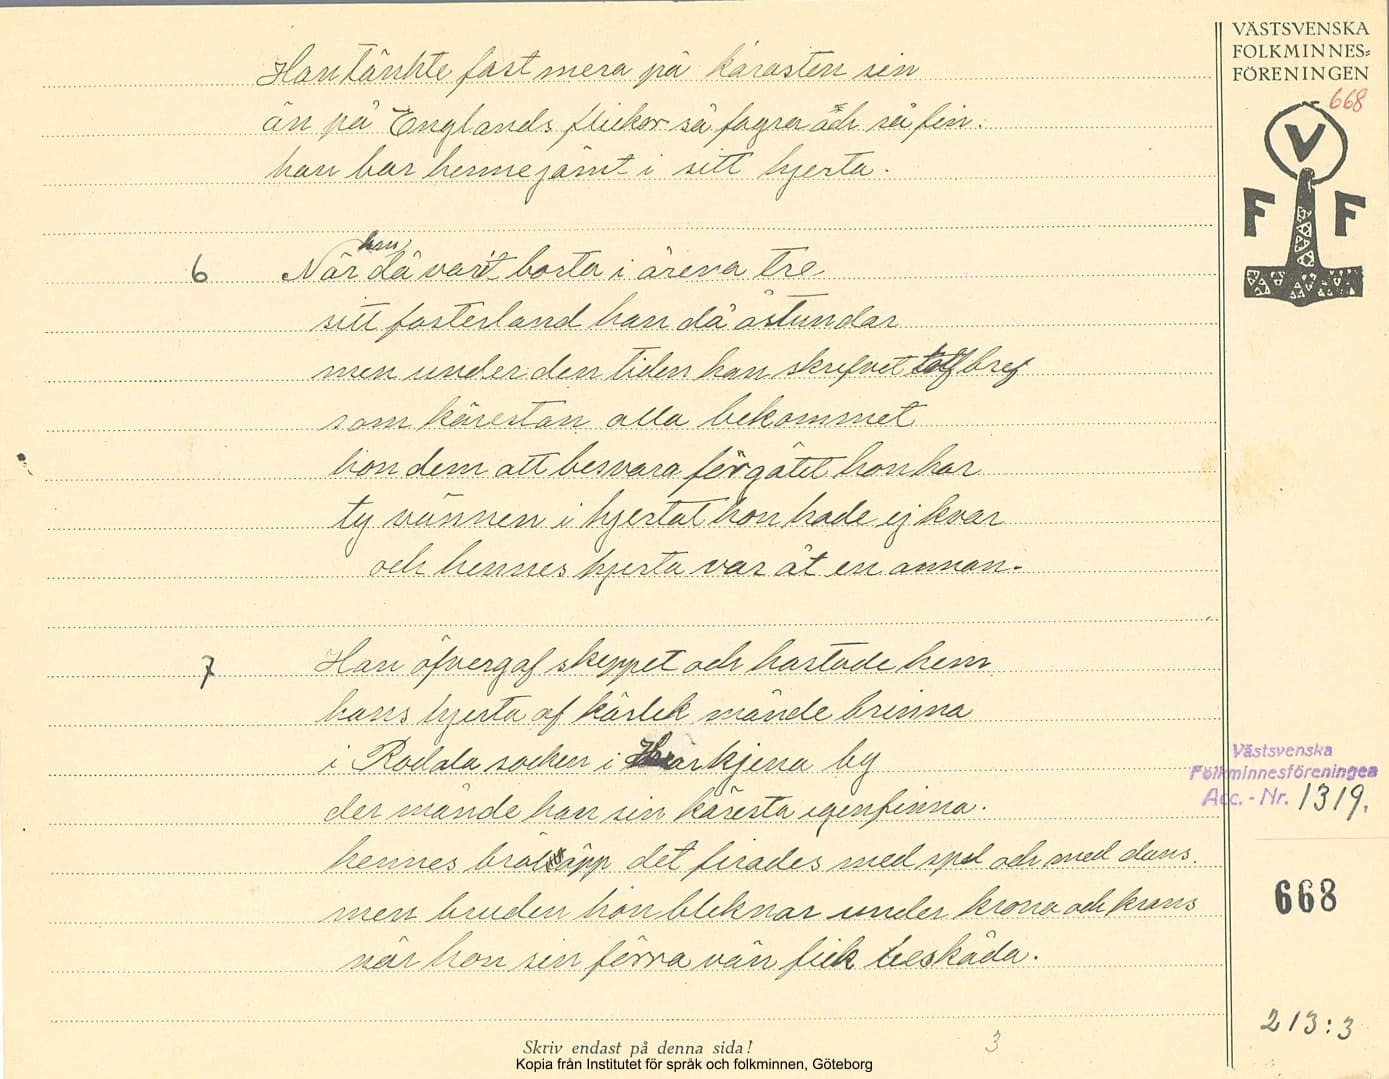 Han tänkte fast mera på kärasten sin
än på Englands flickor så fagra och så fin.
han bar henne jämt i sitt hjerta.
6 När han då varit borta i årena tre
sitt fosterland han då åstundar
men under den tiden han skrifvet tolf bref
som kärestan alla bekommet
hon dem att besvara förgätit hon har
ty vännen i hjertat hon hade ej kvar
och hennes hjerta var åt en annan.
7 Han öfvergaf skeppet och hastade hem
hans hjerta af kärlek månde brinna
i Rodda socken i by
der månde han sin käresta igenfinna.
hennes det firades med spel och med dans.
men bruden hon bleknar under krona och krans
när hon sin förra vän fick beskåda.
3
Skriv endast på denna sida!
Kopia från Institutet för språk och folkminnen, Göteborg
VÄSTSVENSKA
FOLKMINNES=
FÖRENINGEN
668
V
F F
Västsvenska
Folkminnesföreningen
Acc. - Nr. 1319.
668
213:3